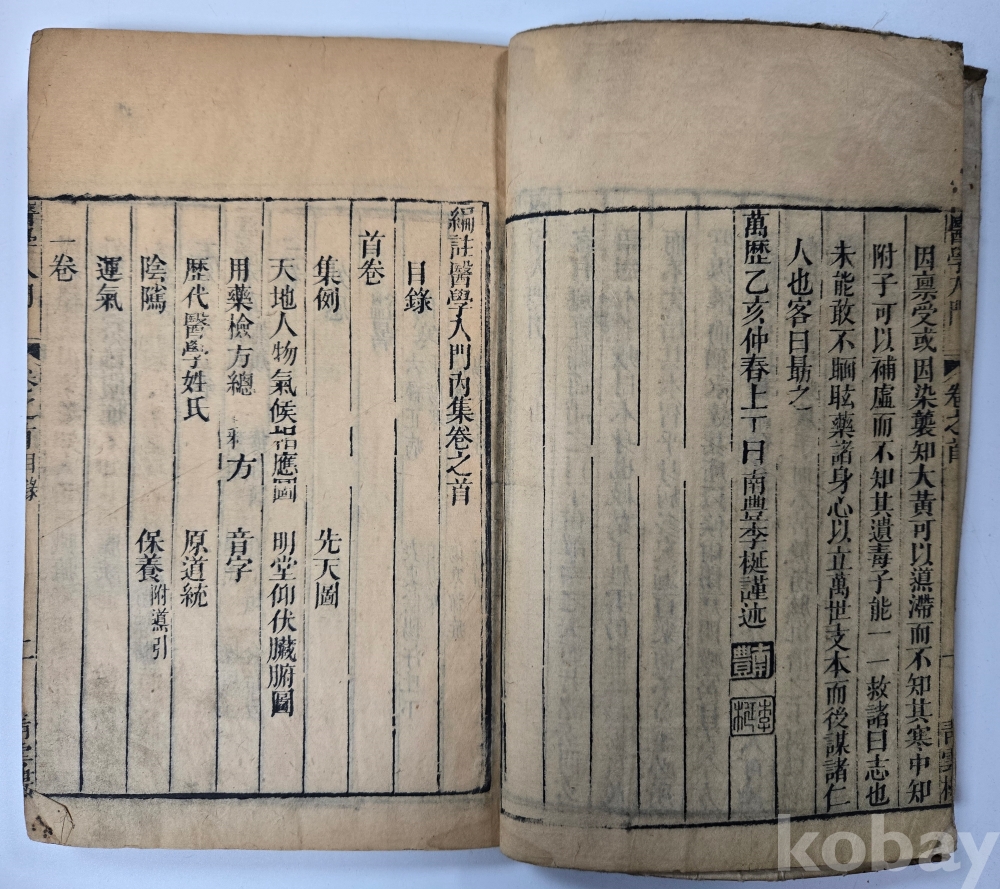 醫學入門 卷之首 一 青雲樓
因稟受或因染襲知大黃可以蕩滯而不知其寒中知
附子可以補虛而不知其遺毒子能一一救諸曰志也
未能敢不瞑眩藥諸身心以立萬世支本而後謀諸仁
人也客曰勗之
萬歷乙亥仲春上丁日南豐李梴謹述
南豐
李梴
編註醫學入門內集卷之首
目錄
首卷
集例 先天圖
天地人物氣候相應圖 明堂仰伏臟腑圖
用藥檢方總 方 音字
歷代醫學姓氏 原道統
陰隲 保養 附導引
運氣
一卷
醫學入門 卷之首目錄
kobay